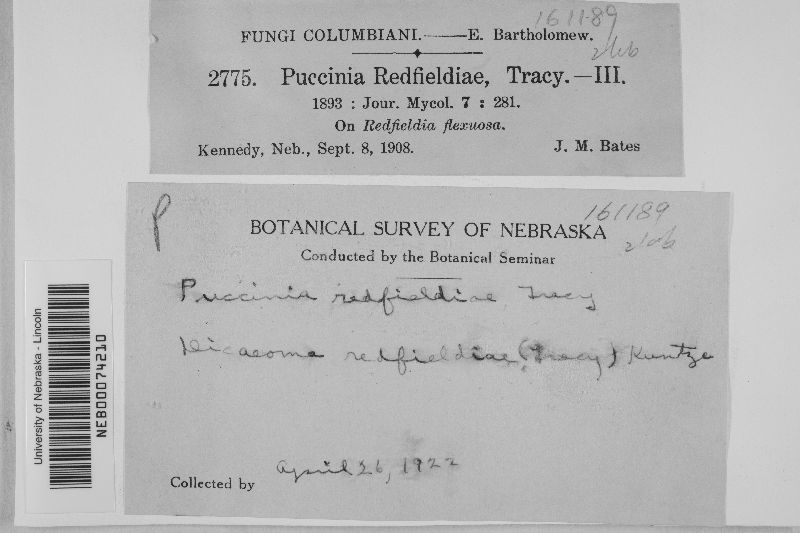 161189
FUNGI COLUMBIANI.——E. Bartholomew.
2775. Puccinia Redfieldiae, Tracy.—III.
1893 : Jour. Mycol. 7 : 281.
On Redfieldia flexuosa.
Kennedy, Neb., Sept. 8, 1908. J. M. Bates
P
161189
BOTANICAL SURVEY OF NEBRASKA
Conducted by the Botanical Seminar
Puccinia redfieldiae Tracy
Dicaeoma redfieldiae (Tracy) Kuntze
April 26, 1922
Collected by
University of Nebraska - Lincoln
NEB00074210